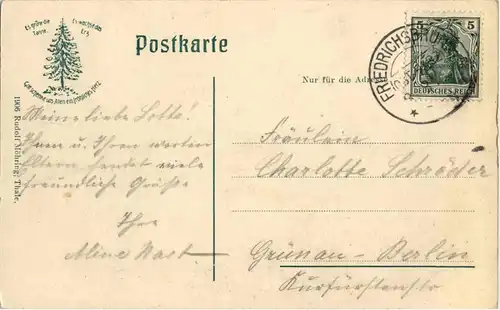 Es grüne die Tanne,
Es wachse das Erz
Gott schenke uns Allen ein fröhliches Herz
Postkarte
Nur für die Adresse
5 5
DEUTSCHES REICH
FRIEDRICHSBRUNN
1906 Rudolf Möhring, Thale.
Meine liebe Lotte!
Ihnen u. Ihren werten
Eltern sendet viele
freundliche Grüße
Ihre
Aline
Fräulein
Charlotte Schröder
Grünau-Berlin
Kurfürstenstr